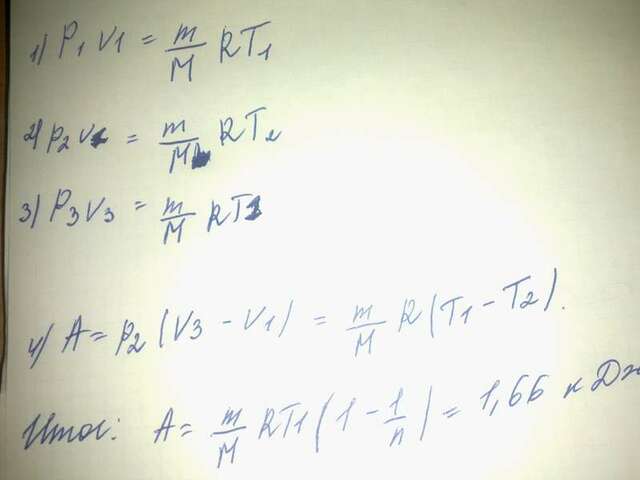 1) P₁V₁ = m/M RT₁
2) P₂V₁ = m/M RT₂
3) P₃V₃ = m/M RT₁
4) A = P₂(V₃ - V₁) = m/M R(T₁ - T₂).
Итог: A = m/M RT₁(1 - 1/n) = 1,66 кДж